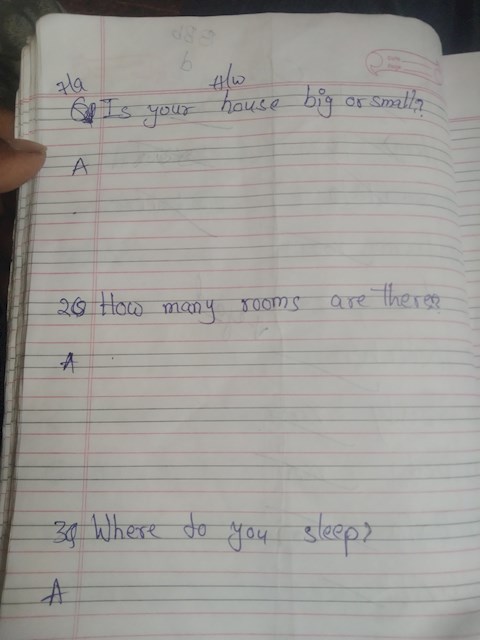 H/w
Is your house big or small?
A
2Q How many rooms are there?
A
3Q Where do you sleep?
A